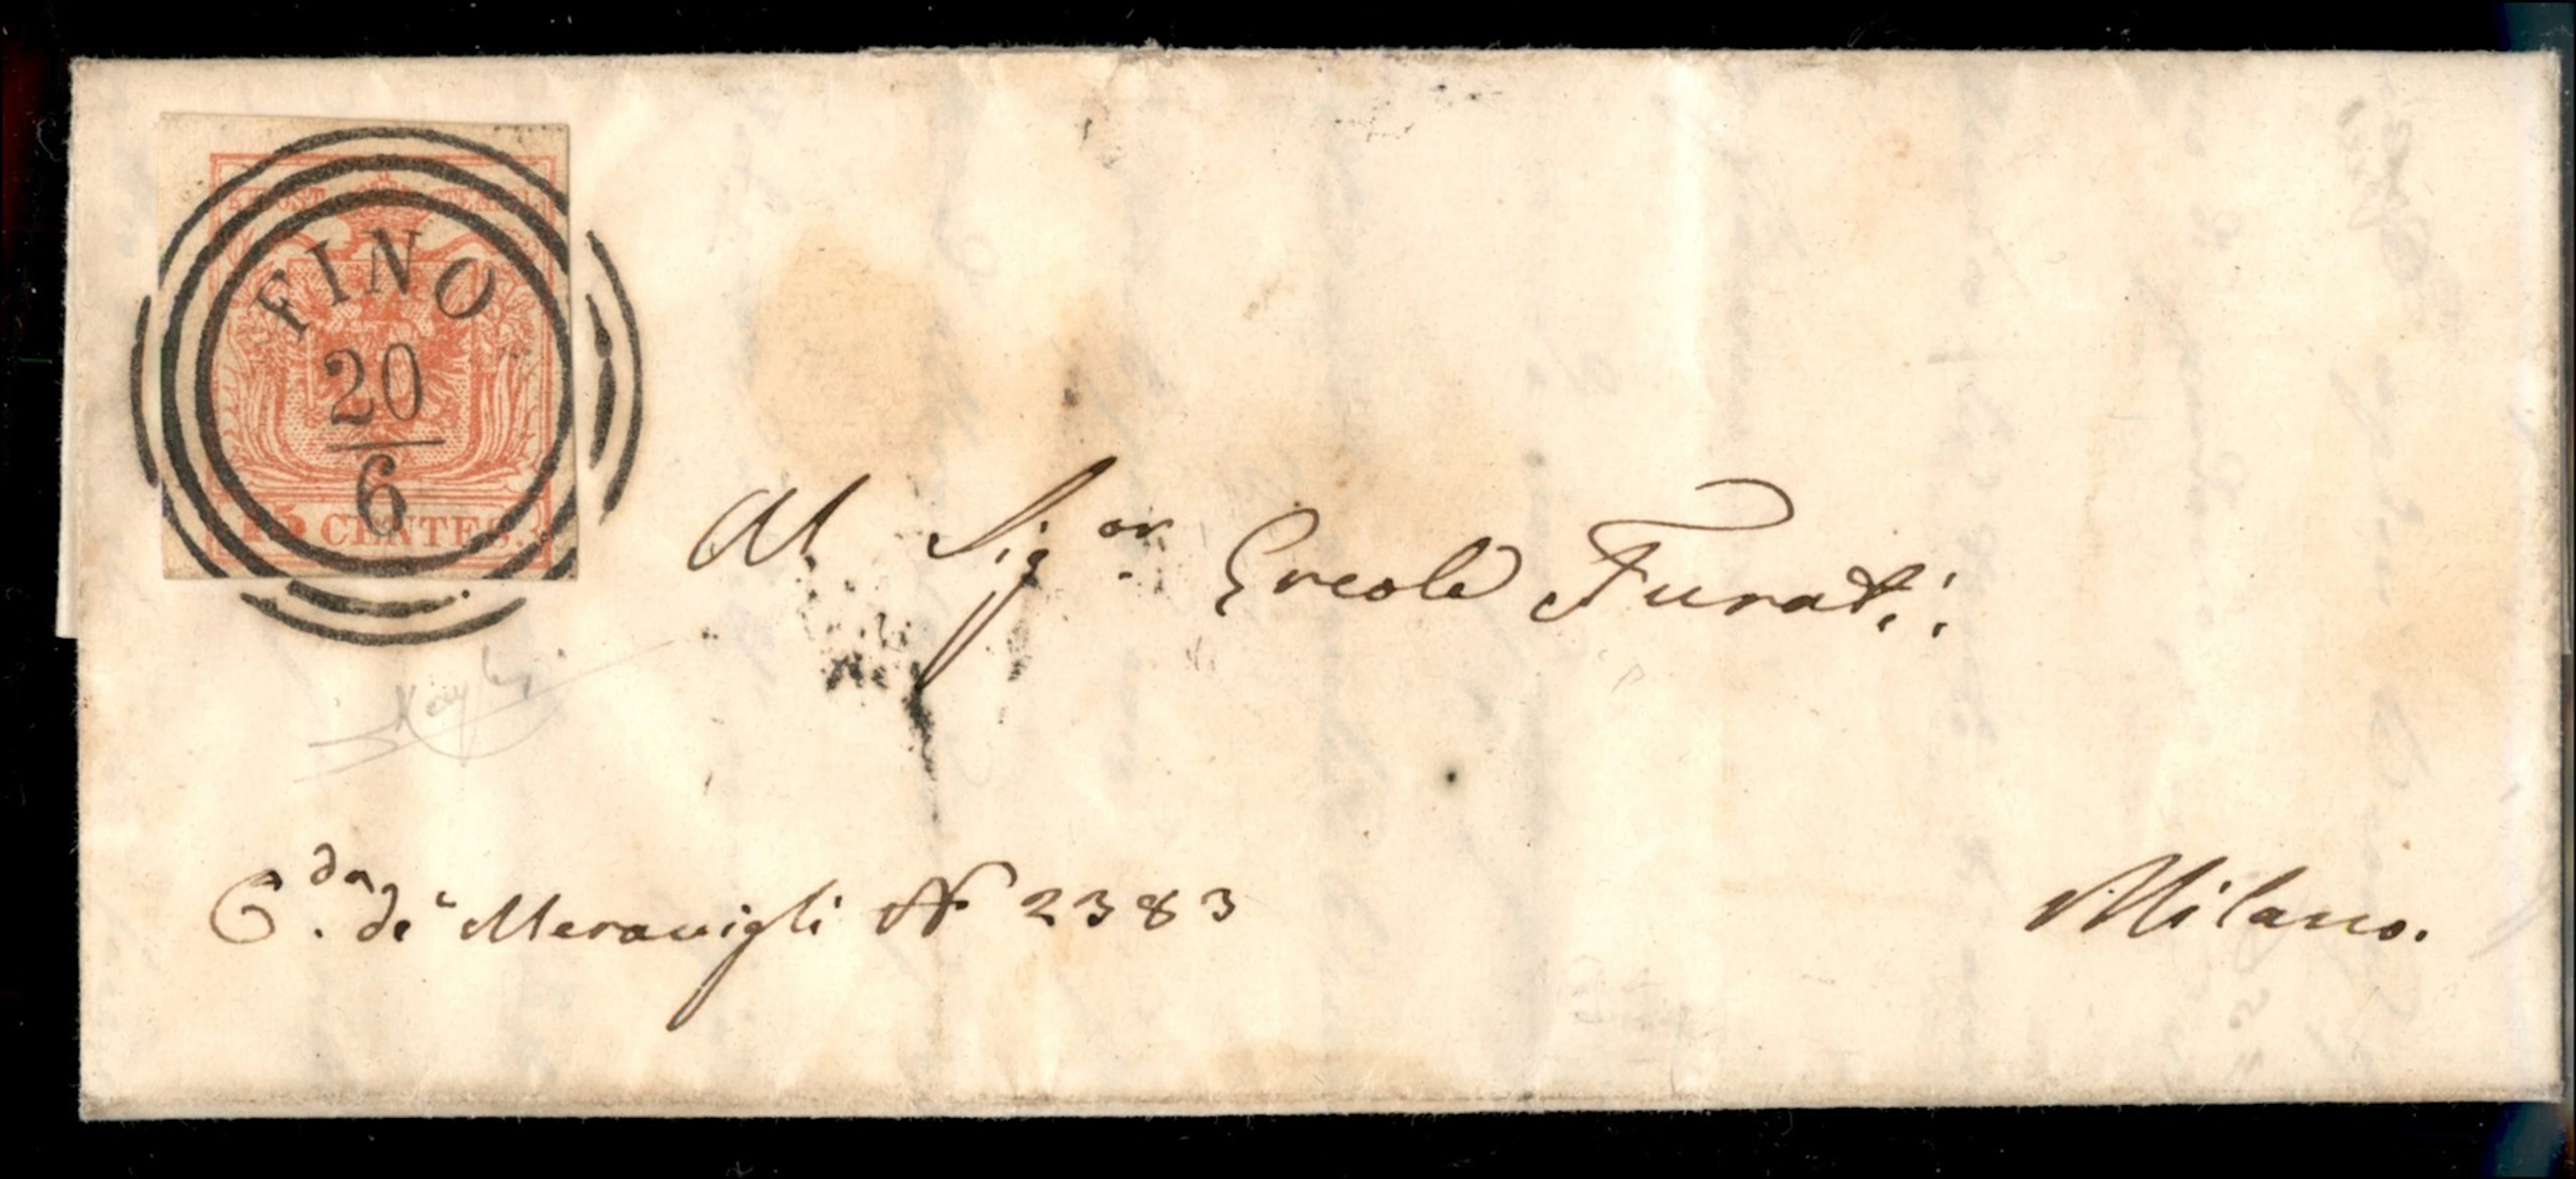 FINO
20
6
15 CENTES.
Al Sigor Ercole Turati
Cda de' Meravigli N 2383
Milano.